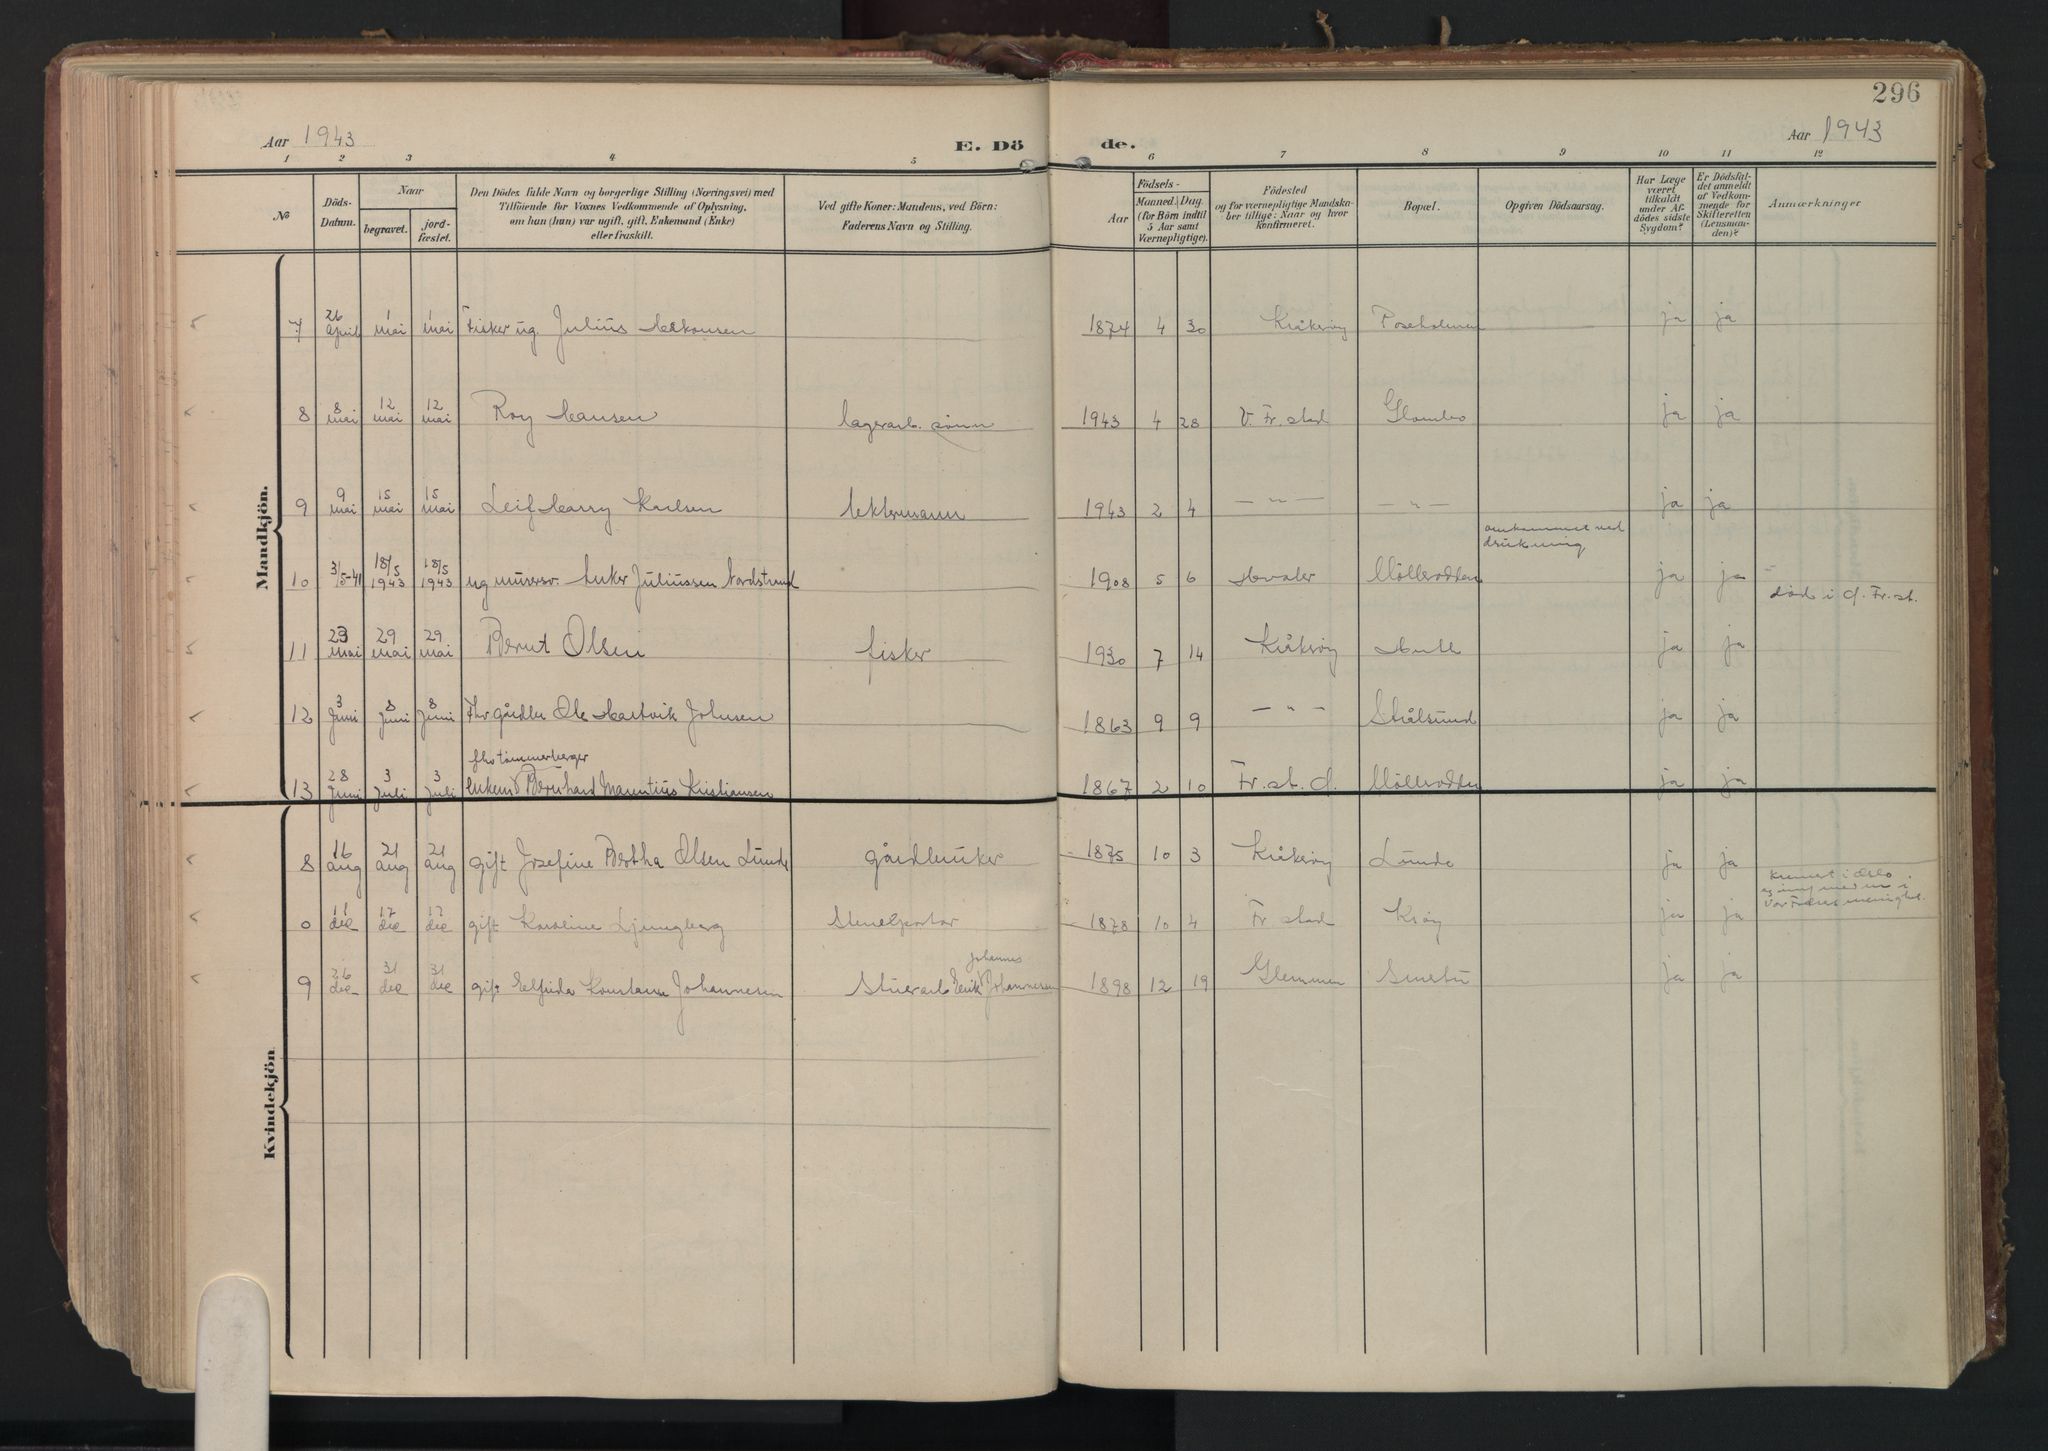 296
Aar 1943
E. Dö
de.
Aar 1943
1 2 3 4 5 6 7 8 9 10 11 12
No
Döds-
Datum.
Naar
begravet.
jord-
fæstet.
Den Dödes fulde Navn og borgerlige Stilling (Næringsvei) med
Tilföiende for Voxnes Vedkommende af Oplysning,
om han (hun) var ugift, gift, Enkemand (Enke)
eller fraskilt.
Ved gifte Koner: Mandens, ved Börn:
Faderens Navn og Stilling.
Aar
Födsels-
Maaned. Dag.
(for Börn indtil
5 Aar samt
Værnepligtige).
Födested
og for værnepligtige Mandska-
ber tillige: Naar og hvor
konfirmeret.
Bopæl.
Opgiven Dödsaarsag.
Har Læge
været
tilkaldt
under Af-
dödes sidste
Sygdom?
Er Dödsfal-
det anmeldt
af Vedkom-
mende for
Skifteretten
(Lensman-
den)?
Anmærkninger
Mandkjön.
7 26 april 1 mai 1 mai Fisker ug. Julius Haakonsen 1874 4 30 Kråkeröy Poseholmen ja ja
8 8 mai 12 mai 12 mai Roy Hansen lagerarb. sönn 1943 4 28 V. Fr. stad Glombo ja ja
9 9 mai 15 mai 15 mai Leif Harry Karlsen lektermann 1943 2 4 — " — — " — ja ja
omkommet ved
drukning
10 3/5-41 18/5 1943 18/5 1943 ug murersv. Juliussen Nordstrand 1908 5 6 Hvaler Möllerodden ja ja
död i G. Fr. st.
11 23 mai 29 mai 29 mai Bernt Olsen fisker 1930 7 14 Kråkeröy ja ja
12 3 Juni 8 Juni 8 Juni Fhv gårdbr. Ole Hartvik Johnsen 1863 9 9 — " — Stålsund ja ja
fhv tömmerberger
13 28 Juni 3 Juli 3 Juli enkem. Bernhard Marentius Kristiansen 1867 2 10 Fr. st. G. Möllerodden ja ja
Kvindekjön
8 16 aug 21 aug 21 aug gift Josefine Bertha Olsen Lunde gårdbruker 1875 10 3 Kråkeröy Lunde ja ja
Kremert i Oslo.
Vor Frelsers menighet.
0 11 des 17 des 17 des gift Karoline Ljungberg 1878 10 4 Fr stad Kröy ja ja
Johannes
9 26 des 31 des 31 des gift Elfrida Konstanse Johannesen Stuerarb Erik Johannesen 1898 12 19 Glemmen Smertu ja ja